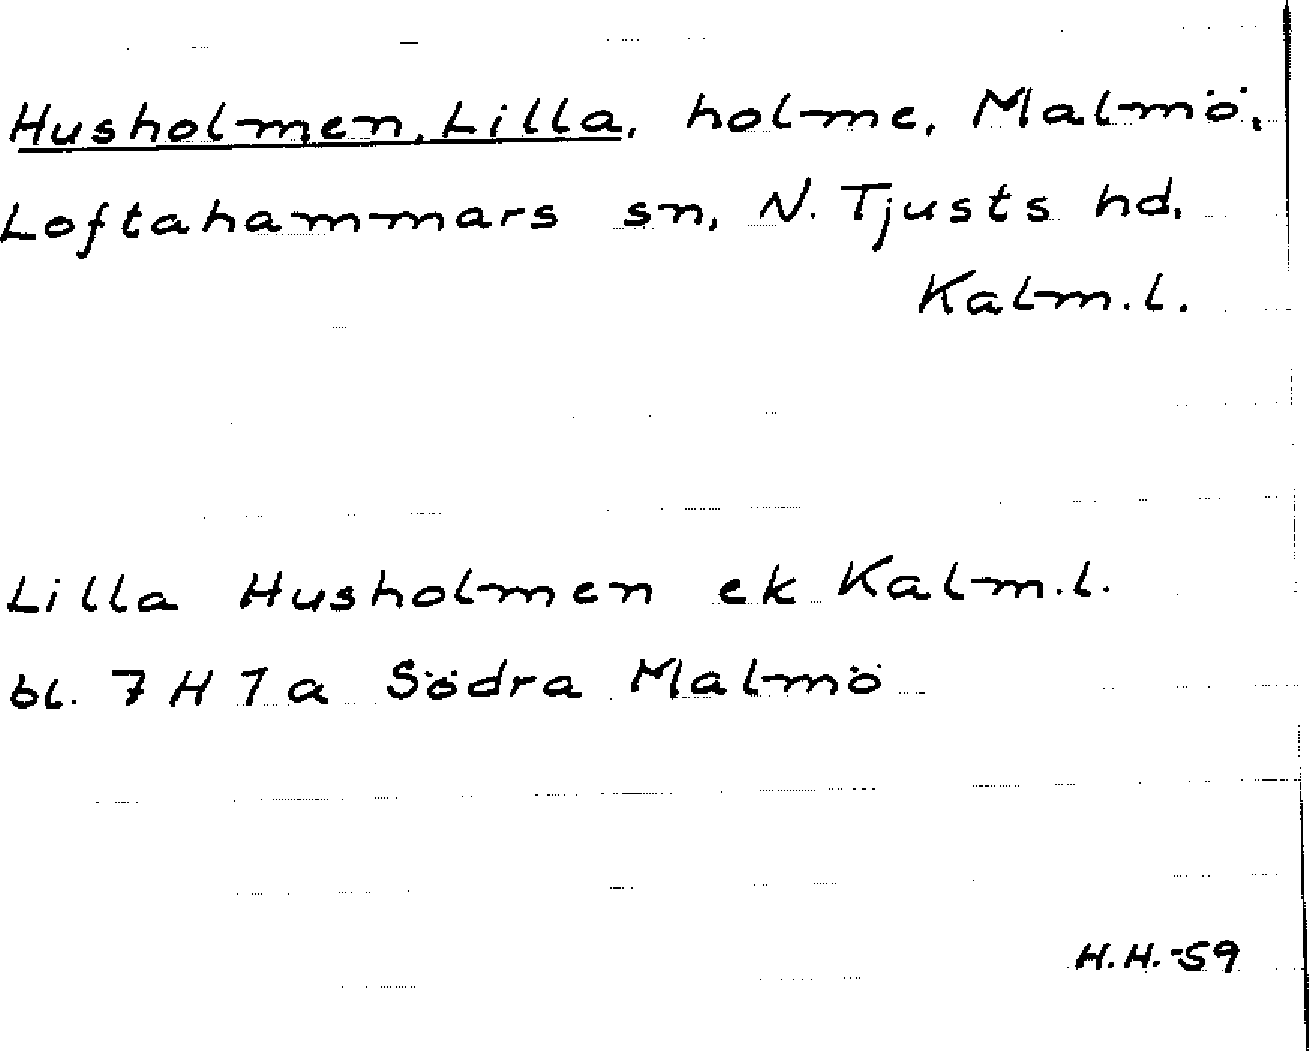 Husholmen, Lilla, holme, Malmö,
Loftahammars sn, N. Tjusts hd,
Kalm.l.
Lilla Husholmen ek Kalm.l.
bl. 7 H 7 a Södra Malmö
H.H.-59